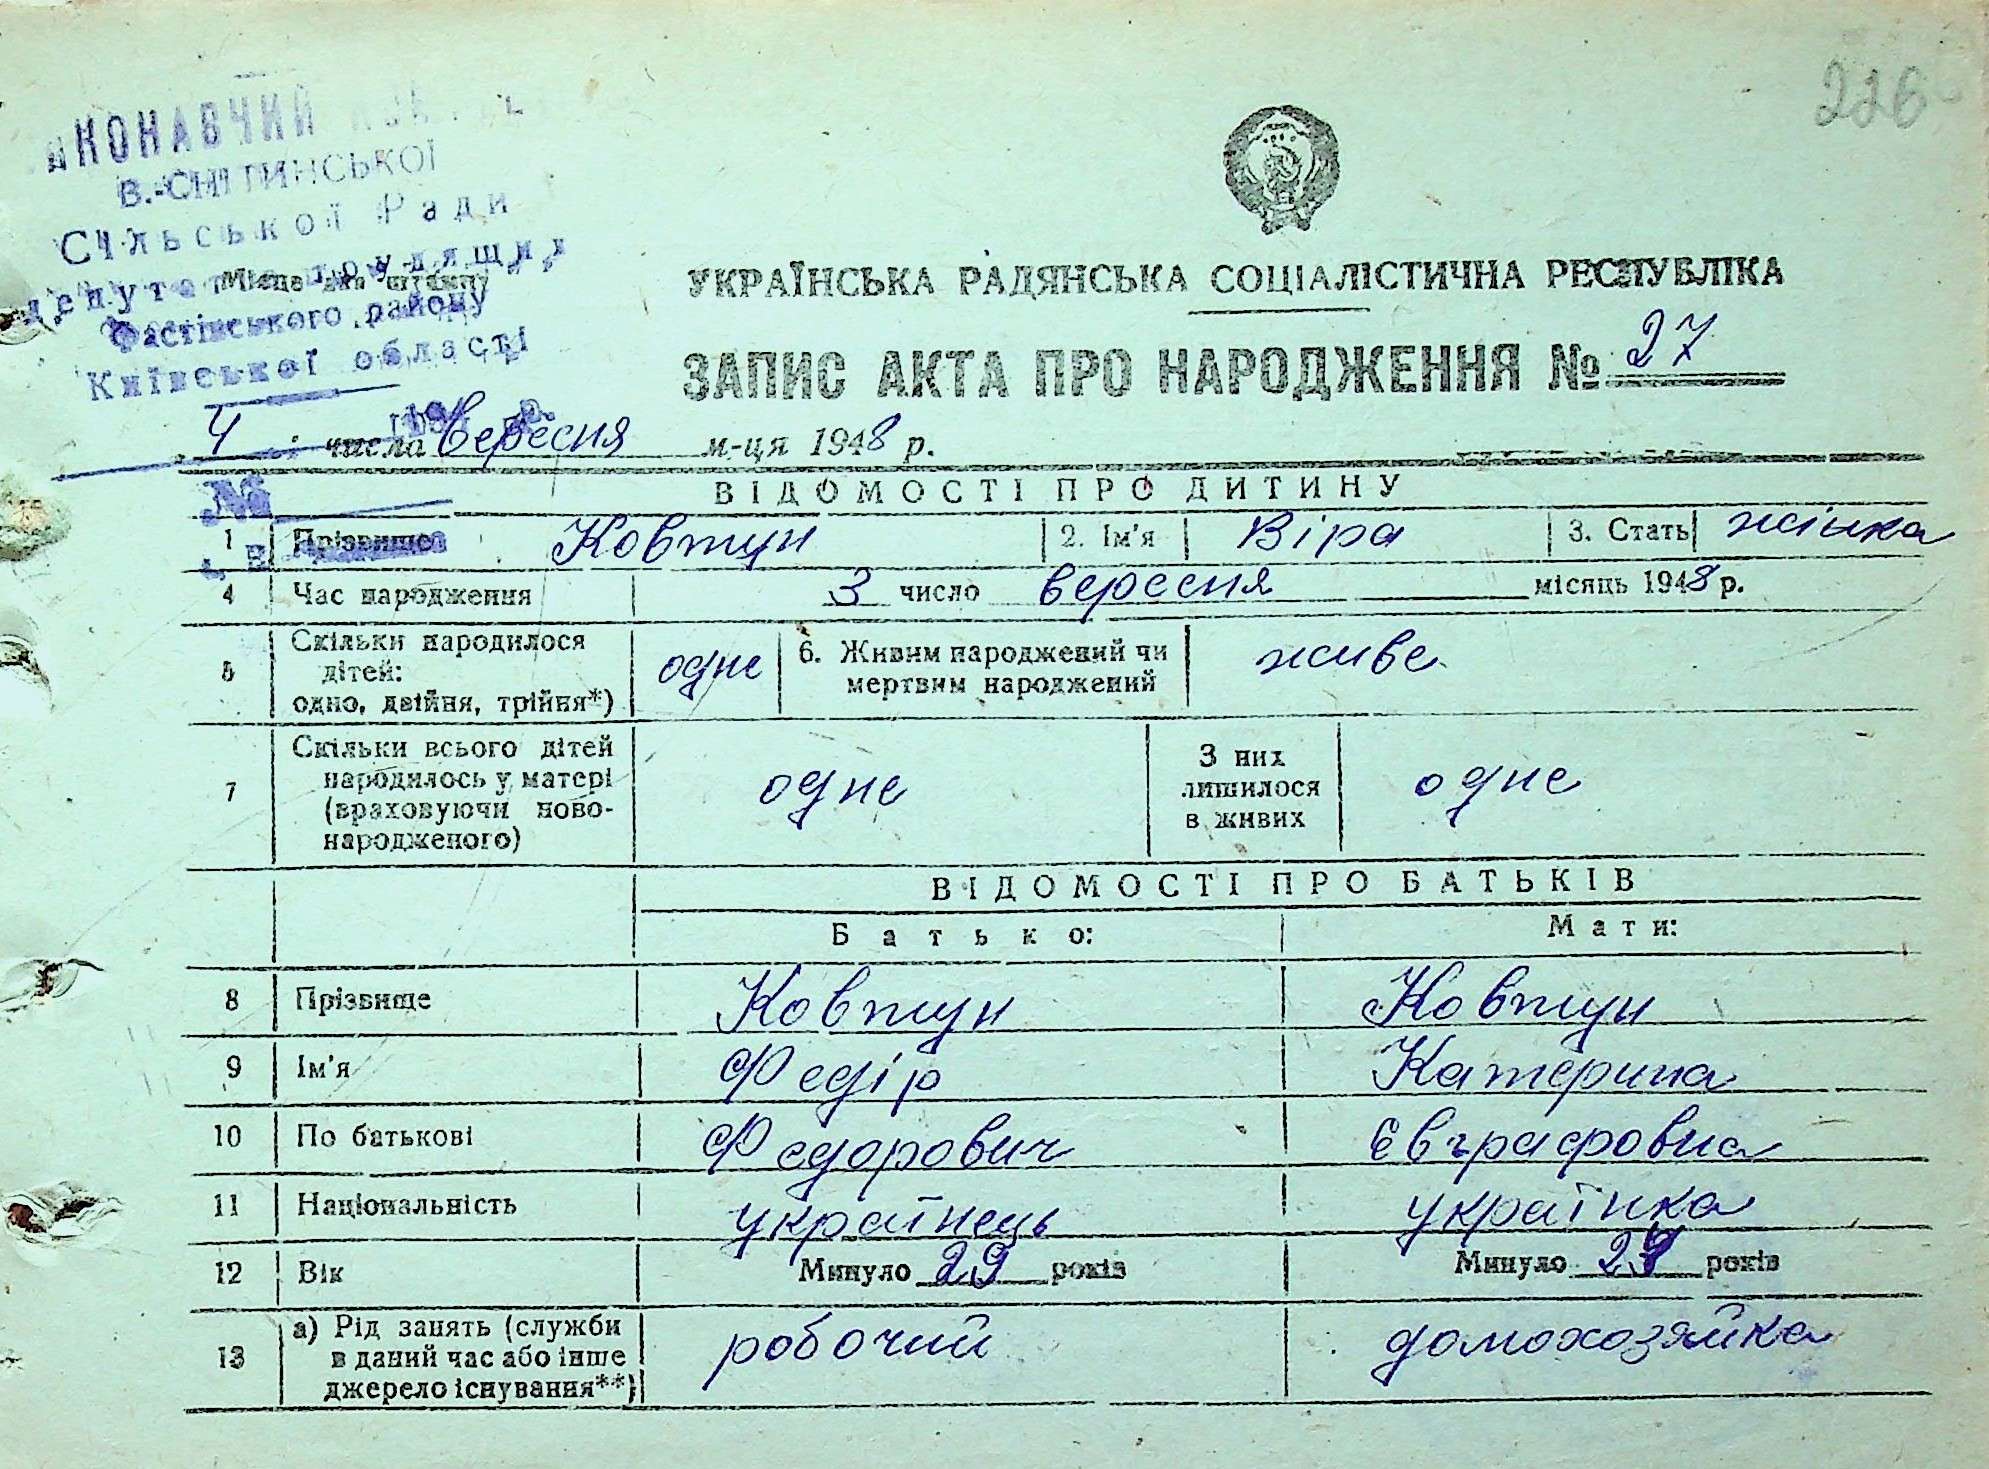 226
ВИКОНАВЧИЙ
В.-СНІТИНСЬКОЇ
Сільської Ради
депутатів трудящих
Місце для штампу
Фастівського району
Київської області
УКРАЇНСЬКА РАДЯНСЬКА СОЦІАЛІСТИЧНА РЕСПУБЛІКА
ЗАПИС АКТА ПРО НАРОДЖЕННЯ № 27
4 числа вересня м-ця 1948 р.
№
ВІДОМОСТІ ПРО ДИТИНУ
1 Прізвище Ковтун 2. Ім'я Віра 3. Стать жінка
4 Час народження 3 число вересня місяць 1948 р.
5 Скільки народилося дітей: одно, двійня, трійня*) одне 6. Живим народжений чи мертвим народжений живе
7 Скільки всього дітей народилось у матері (враховуючи ново-народженого) одне З них лишилося в живих одне
ВІДОМОСТІ ПРО БАТЬКІВ
Батько: Мати:
8 Прізвище Ковтун Ковтун
9 Ім'я Федір Катерина
10 По батькові Федорович Євграфовна
11 Національність українець українка
12 Вік Минуло 29 років Минуло років
13 а) Рід занять (служби в даний час або інше джерело існування**) робочий домохозяйка